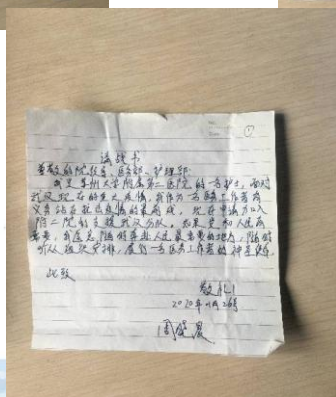 ①
请战书
尊敬的院领导、医务部、护理部:
我是苏州大学附属第二医院的一名护士,面对
武汉现在的重大疫情,我作为一名医务工作者有
义务站在抗击疫情的最前线,现在申请加入
附二院的支援武汉分队。如果党和人民需
要,我愿意随时奔赴人民最需要的地方,随时
听从组织安排,履行一名医务工作者的神圣使命。
此致
敬礼!
2020年1月26号
周盛晨